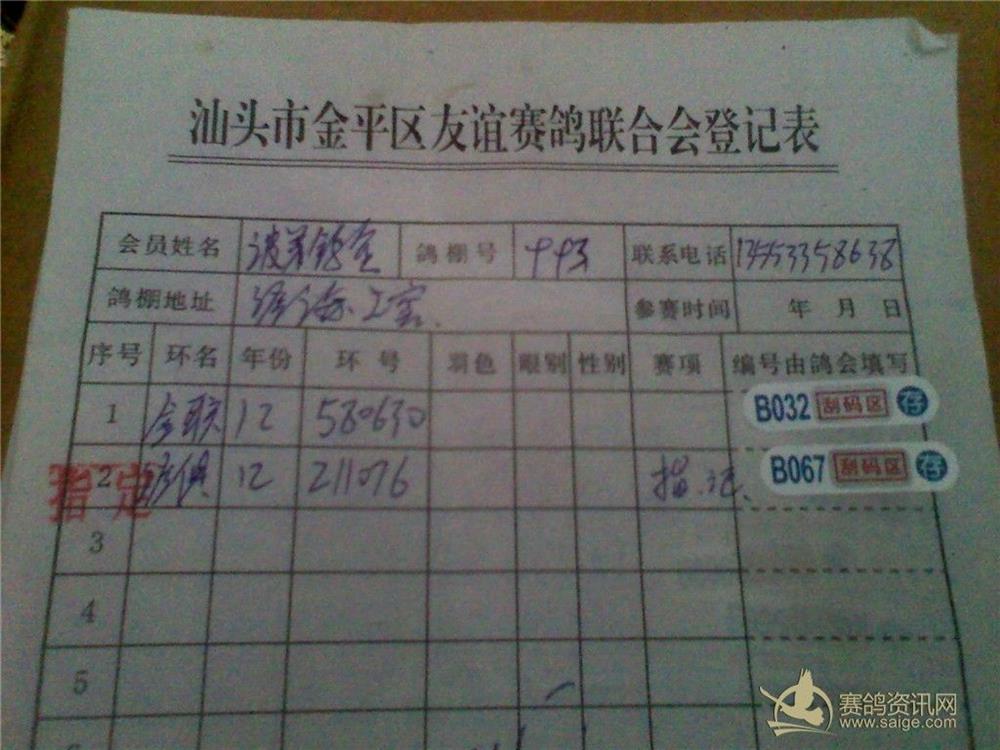 汕头市金平区友谊赛鸽联合会登记表
会员姓名 鸽棚号 443 联系电话 13553358638
鸽棚地址 参赛时间 年 月 日
序号 环名 年份 环号 羽色 眼别 性别 赛项 编号由鸽会填写
1 金联 12 580630 B032 刮码区 存
2 指定 12 211076 指定 B067 刮码区 存
3
4
5
赛鸽资讯网
www.saige.com